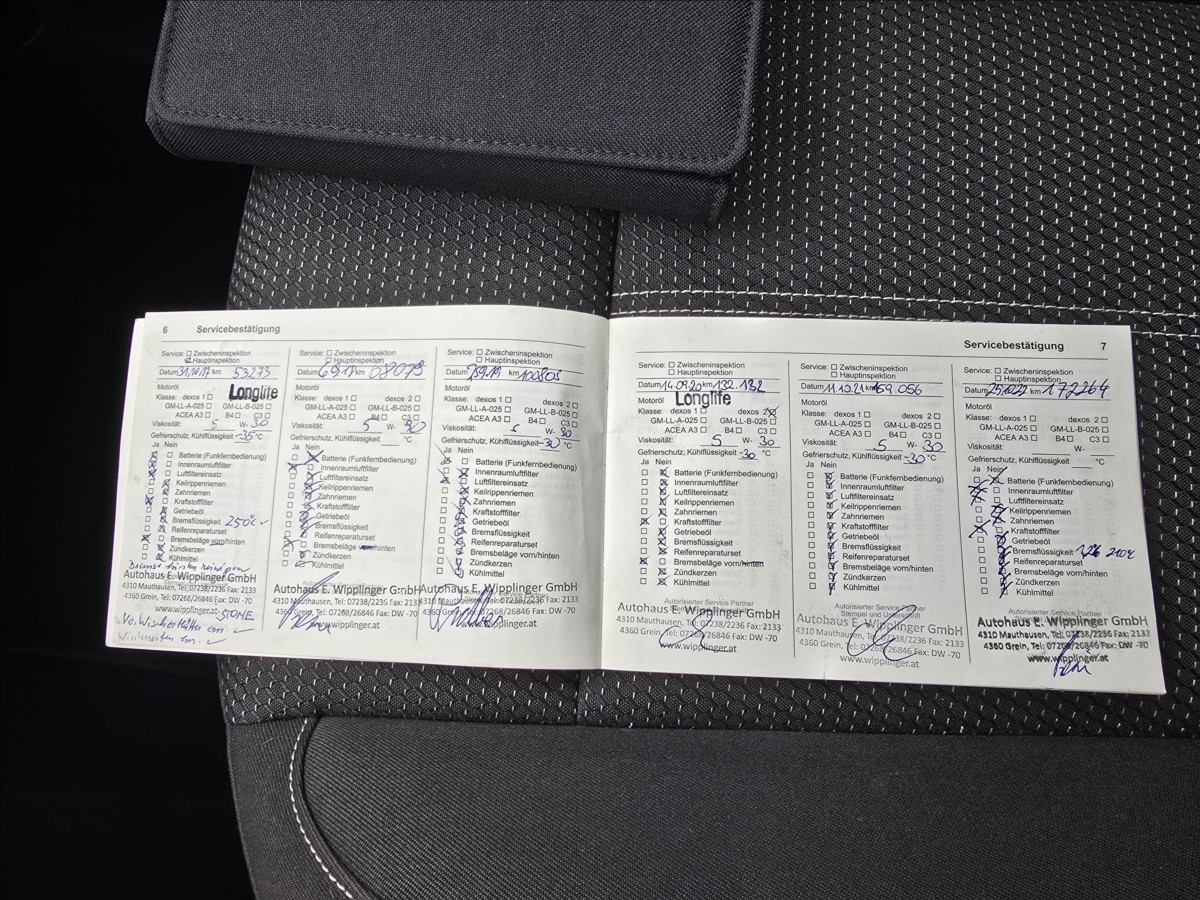 6 Servicebestätigung
Service: Zwischeninspektion
Hauptinspektion
Datum 31.10.17 km 53273
Motoröl
Longlife
Klasse: dexos 1
GM-LL-A-025 GM-LL-B-025
ACEA A3 B4 C3
Viskosität: 5 W- 30
Gefrierschutz, Kühlflüssigkeit -35 °C
Ja Nein
Batterie (Funkfernbedienung)
Innenraumluftfilter
Luftfiltereinsatz
Keilrippenriemen
Zahnriemen
Kraftstofffilter
Getriebeöl
Bremsflüssigkeit
Reifenreparaturset
Bremsbeläge vorn/hinten
Zündkerzen
Kühlmittel
Autohaus E. Wipplinger GmbH
4310 Mauthausen, Tel: 07238/2236 Fax: 2133
4360 Grein, Tel: 07268/26846 Fax: DW -70
www.wipplinger.at
Service: Zwischeninspektion
Hauptinspektion
Datum km
Motoröl
Klasse: dexos 1
GM-LL-A-025 GM-LL-B-025
ACEA A3 B4 C3
Viskosität: 5 W- 30
Gefrierschutz, Kühlflüssigkeit °C
Ja Nein
Batterie (Funkfernbedienung)
Innenraumluftfilter
Luftfiltereinsatz
Keilrippenriemen
Zahnriemen
Kraftstofffilter
Getriebeöl
Bremsflüssigkeit
Reifenreparaturset
Bremsbeläge vorn/hinten
Zündkerzen
Kühlmittel
Autohaus E. Wipplinger GmbH
4310 Mauthausen, Tel: 07238/2236 Fax: 2133
4360 Grein, Tel: 07268/26846 Fax: DW -70
www.wipplinger.at
Service: Zwischeninspektion
Hauptinspektion
Datum km 100805
Motoröl
Klasse: dexos 1 dexos 2
GM-LL-A-025 GM-LL-B-025
ACEA A3 B4 C3
Viskosität: 5 W- 30
Gefrierschutz, Kühlflüssigkeit -30 °C
Ja Nein
Batterie (Funkfernbedienung)
Innenraumluftfilter
Luftfiltereinsatz
Keilrippenriemen
Zahnriemen
Kraftstofffilter
Getriebeöl
Bremsflüssigkeit
Reifenreparaturset
Bremsbeläge vorn/hinten
Zündkerzen
Kühlmittel
Autohaus E. Wipplinger GmbH
4310 Mauthausen, Tel: 07238/2236 Fax: 2133
4360 Grein, Tel: 07268/26846 Fax: DW -70
www.wipplinger.at
Servicebestätigung 7
Service: Zwischeninspektion
Hauptinspektion
Datum 14.09.20 km 132.132
Motoröl
Longlife
Klasse: dexos 1 dexos 2
GM-LL-A-025 GM-LL-B-025
ACEA A3 B4 C3
Viskosität: 5 W- 30
Gefrierschutz, Kühlflüssigkeit -30 °C
Ja Nein
Batterie (Funkfernbedienung)
Innenraumluftfilter
Luftfiltereinsatz
Keilrippenriemen
Zahnriemen
Kraftstofffilter
Getriebeöl
Bremsflüssigkeit
Reifenreparaturset
Bremsbeläge vorn/hinten
Zündkerzen
Kühlmittel
Autorisierter Service Partner
Autohaus E. Wipplinger GmbH
4310 Mauthausen, Tel: 07238/2236 Fax: 2133
4360 Grein, Tel: 07268/26846 Fax: DW -70
www.wipplinger.at
Service: Zwischeninspektion
Hauptinspektion
Datum 11.10.21 km 159.056
Motoröl
Klasse: dexos 1 dexos 2
GM-LL-A-025 GM-LL-B-025
ACEA A3 B4 C3
Viskosität: 5 W- 30
Gefrierschutz, Kühlflüssigkeit -30 °C
Ja Nein
Batterie (Funkfernbedienung)
Innenraumluftfilter
Luftfiltereinsatz
Keilrippenriemen
Zahnriemen
Kraftstofffilter
Getriebeöl
Bremsflüssigkeit
Reifenreparaturset
Bremsbeläge vorn/hinten
Zündkerzen
Kühlmittel
Autorisierter Service Partner
Stempel und Unterschrift
Autohaus E. Wipplinger GmbH
4310 Mauthausen, Tel: 07238/2236 Fax: 2133
4360 Grein, Tel: 07268/26846 Fax: DW -70
www.wipplinger.at
Service: Zwischeninspektion
Hauptinspektion
Datum km 172264
Motoröl
Klasse: dexos 1 dexos 2
GM-LL-A-025 GM-LL-B-025
ACEA A3 B4 C3
Viskosität: W-
Gefrierschutz, Kühlflüssigkeit °C
Ja Nein
Batterie (Funkfernbedienung)
Innenraumluftfilter
Luftfiltereinsatz
Keilrippenriemen
Zahnriemen
Kraftstofffilter
Getriebeöl
Bremsflüssigkeit
Reifenreparaturset
Bremsbeläge vorn/hinten
Zündkerzen
Kühlmittel
Autorisierter Service Partner
Autohaus E. Wipplinger GmbH
4310 Mauthausen, Tel: 07238/2236 Fax: 2133
4360 Grein, Tel: 07268/26846 Fax: DW -70
www.wipplinger.at